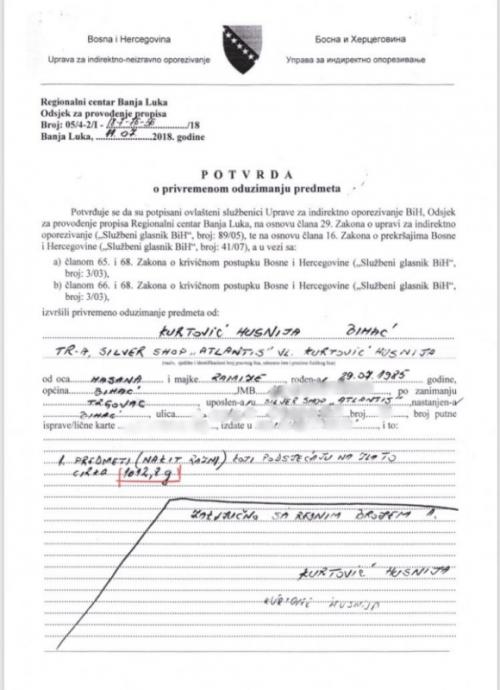 Bosna i Hercegovina
Босна и Херцеговина
Uprava za indirektno-neizravno oporezivanje
Управа за индиректно опорезивање
Regionalni centar Banja Luka
Odsjek za provođenje propisa
Broj: 05/4-2/I - /18
Banja Luka, 11.07. 2018. godine
POTVRDA
o privremenom oduzimanju predmeta
Potvrđuje se da su potpisani ovlašteni službenici Uprave za indirektno oporezivanje BiH, Odsjek
za provođenje propisa Regionalni centar Banja Luka, na osnovu člana 29. Zakona o upravi za indirektno
oporezivanje („Službeni glasnik BiH“, broj: 89/05), te na osnovu člana 16. Zakona o prekršajima Bosne
i Hercegovine („Službeni glasnik BiH“, broj: 41/07), a u vezi sa:
a) članom 65. i 68. Zakona o krivičnom postupku Bosne i Hercegovine („Službeni glasnik BiH“,
broj: 3/03),
b) članom 66. i 68. Zakona o krivičnom postupku Bosne i Hercegovine („Službeni glasnik BiH“,
broj: 3/03),
izvršili privremeno oduzimanje predmeta od:
KURTOVIĆ HUSNIJA BIHAĆ
TR-A, SILVER SHOP „ATLANTIS“ VL. KURTOVIĆ HUSNIJA
od oca HASANA i majke ZAMIJE, rođen-a 29.07.1985 godine,
općina BIHAĆ JMB po zanimanju
TRGOVAC, uposlen-a u SILVER SHOP „ATLANTIS“, nastanjen-a
BIHAĆ, ulica broj, broj putne
isprave/lične karte, izdate u, i to:
1. PREDMETI (NAKIT RAZNI) KOJI PODSJEĆAJU NA ZLATO
CIRKA 1012,7 g
ZAKLJUČNO SA REDNIM BROJEM 1.
KURTOVIĆ HUSNIJA
HUSNIJA